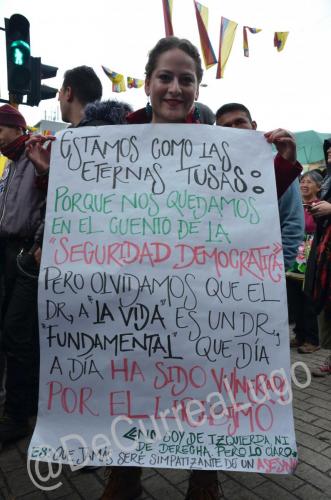 ESTAMOS COMO LAS
ETERNAS TUSAS:
PORQUE NOS QUEDAMOS
EN EL CUENTO DE LA
"SEGURIDAD DEMOCRATICA"
PERO OLVIDAMOS QUE EL
DR, A "LA VIDA" ES UN DR,
"FUNDAMENTAL" QUE DIA
A DIA HA SIDO
POR EL
<<NO SOY DE IZQUIERDA NI
DE DERECHA PERO LO CLARO
ES QUE JAMÁS SERE SIMPATIZANTE DE UN ASESINO
@DeCurreaLugo